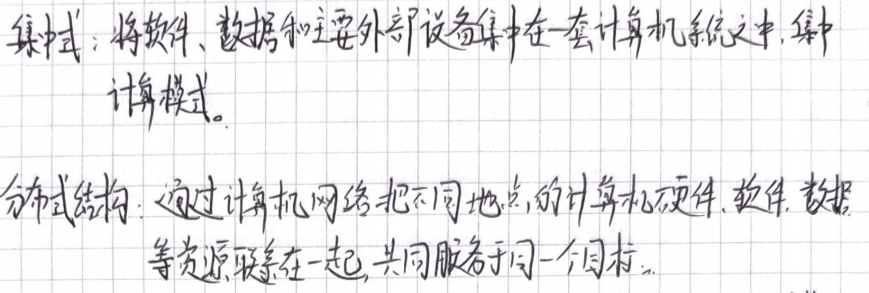 集中式：将软件、数据和主要外部设备集中在一套计算机系统之中，集中
计算模式。
分布式结构：通过计算机网络把不同地点的计算机硬件、软件、数据
等资源联系在一起，共同服务于同一个目标。